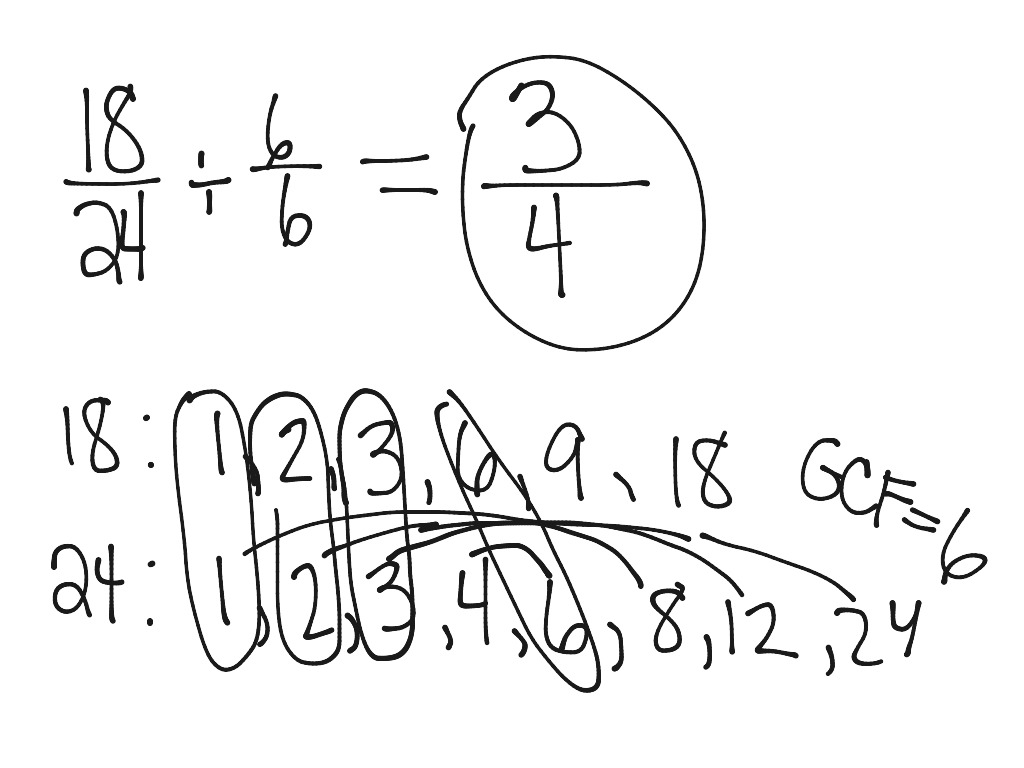 18/24 ÷ 6/6 = 3/4
18: 1, 2, 3, 6, 9, 18 GCF=6
24: 1, 2, 3, 4, 6, 8, 12, 24